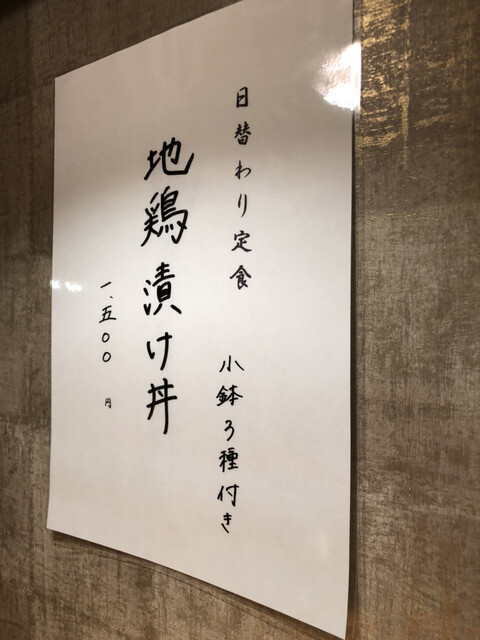 日替わり定食
小鉢3種付き
地鶏漬け丼
一、五〇〇円